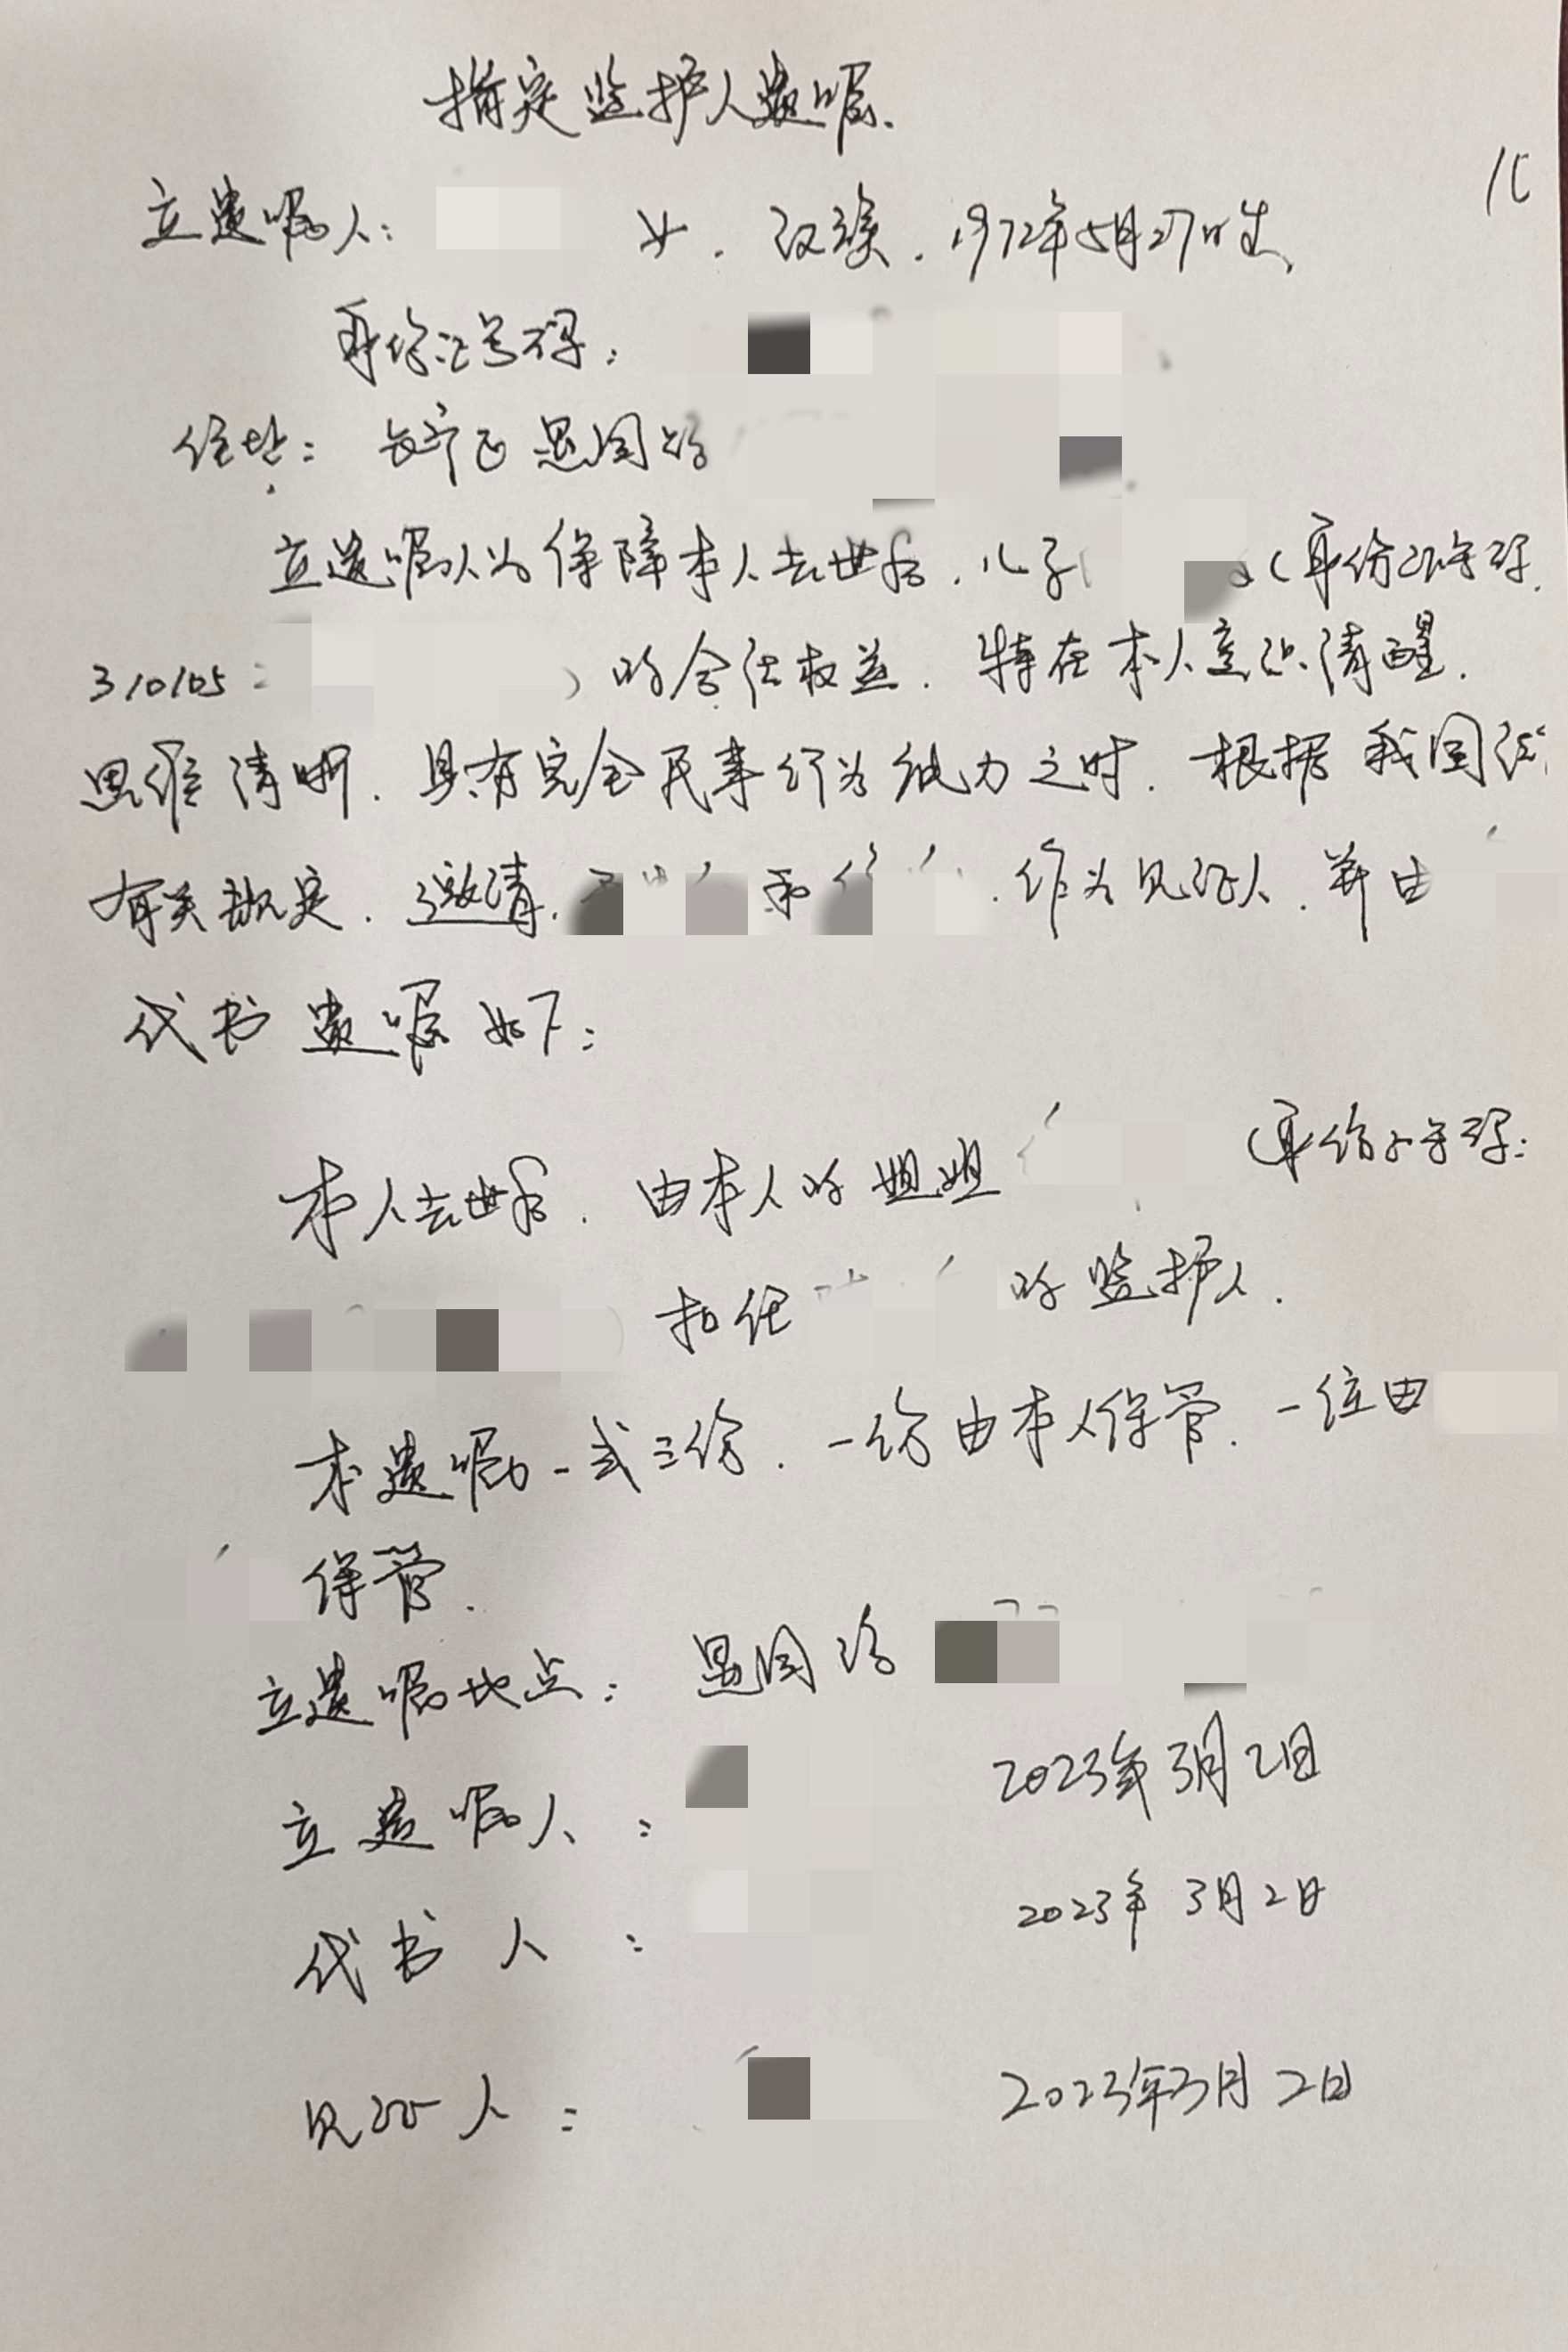 指定监护人遗嘱.
立遗嘱人: 女. 汉族. 1972年5月27日生,
身份证号码:
住址: 长宁区思固路
立遗嘱人为保障本人去世后. 儿子 (身份证号码.
310105 ) 的合法权益. 特在本人意识清醒.
思维清晰. 具有完全民事行为能力之时. 根据我国法
有关规定. 邀请. 和 . 作为见证人. 并由
代书遗嘱如下:
本人去世后. 由本人的姐姐 (身份证号码:
担任 的监护人.
本遗嘱一式三份. 一份由本人保管. 一位由
保管.
立遗嘱地点: 思固路
立遗嘱人: 2023年3月2日
代书人: 2023年3月2日
见证人: 2023年3月2日